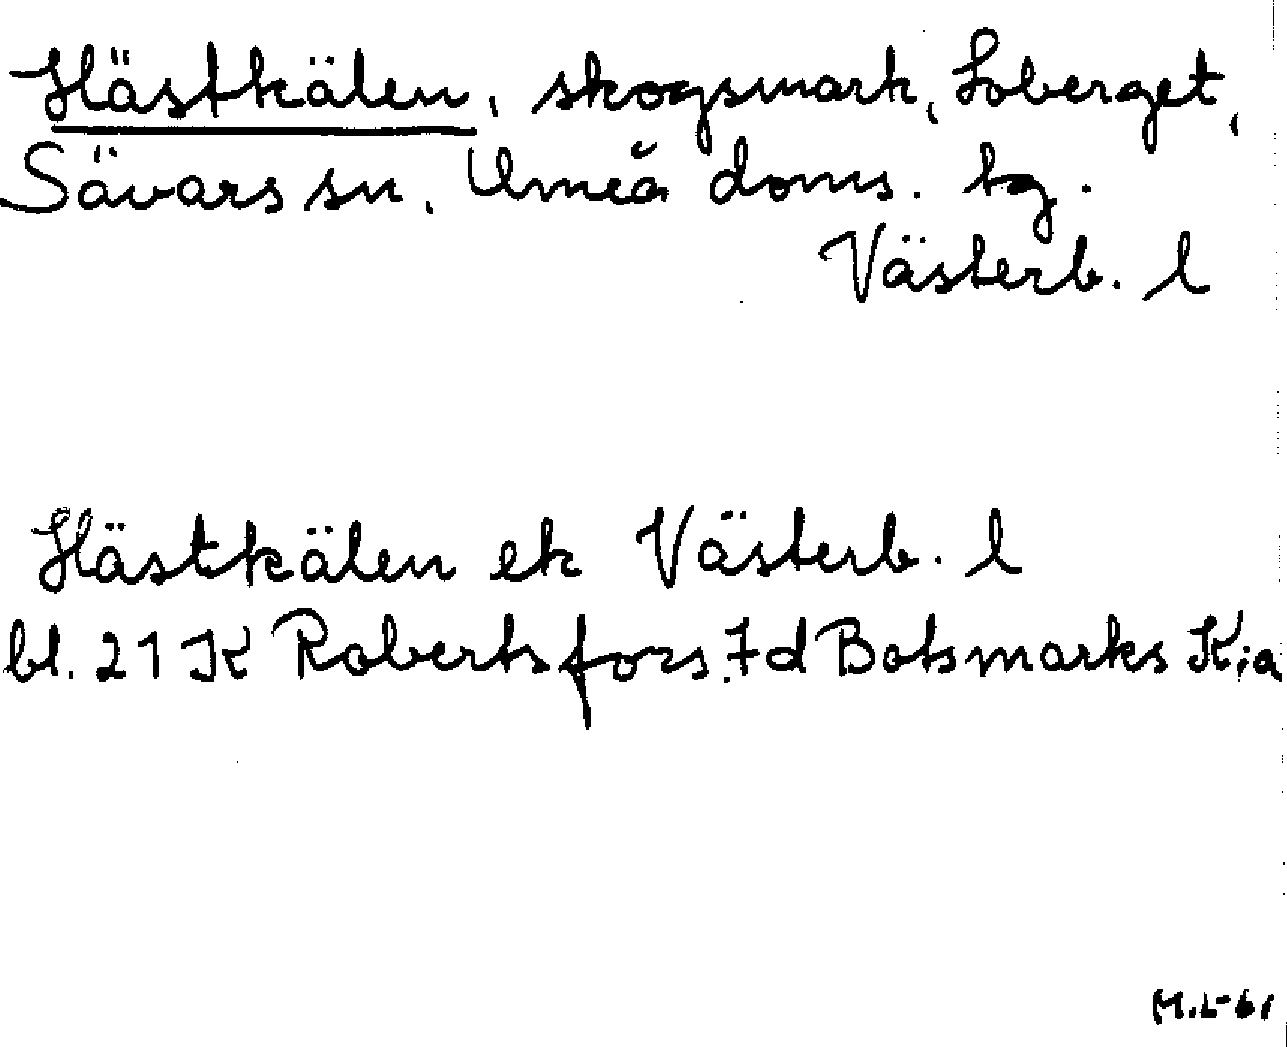 Hästkälen, skogsmark, Loberget,
Sävars sn, Umeå doms. tg.
Västerb. l
Hästkälen ek Västerb. l
bl. 21 K Robertsfors. 7 d Botsmarks K:a
M.L-61